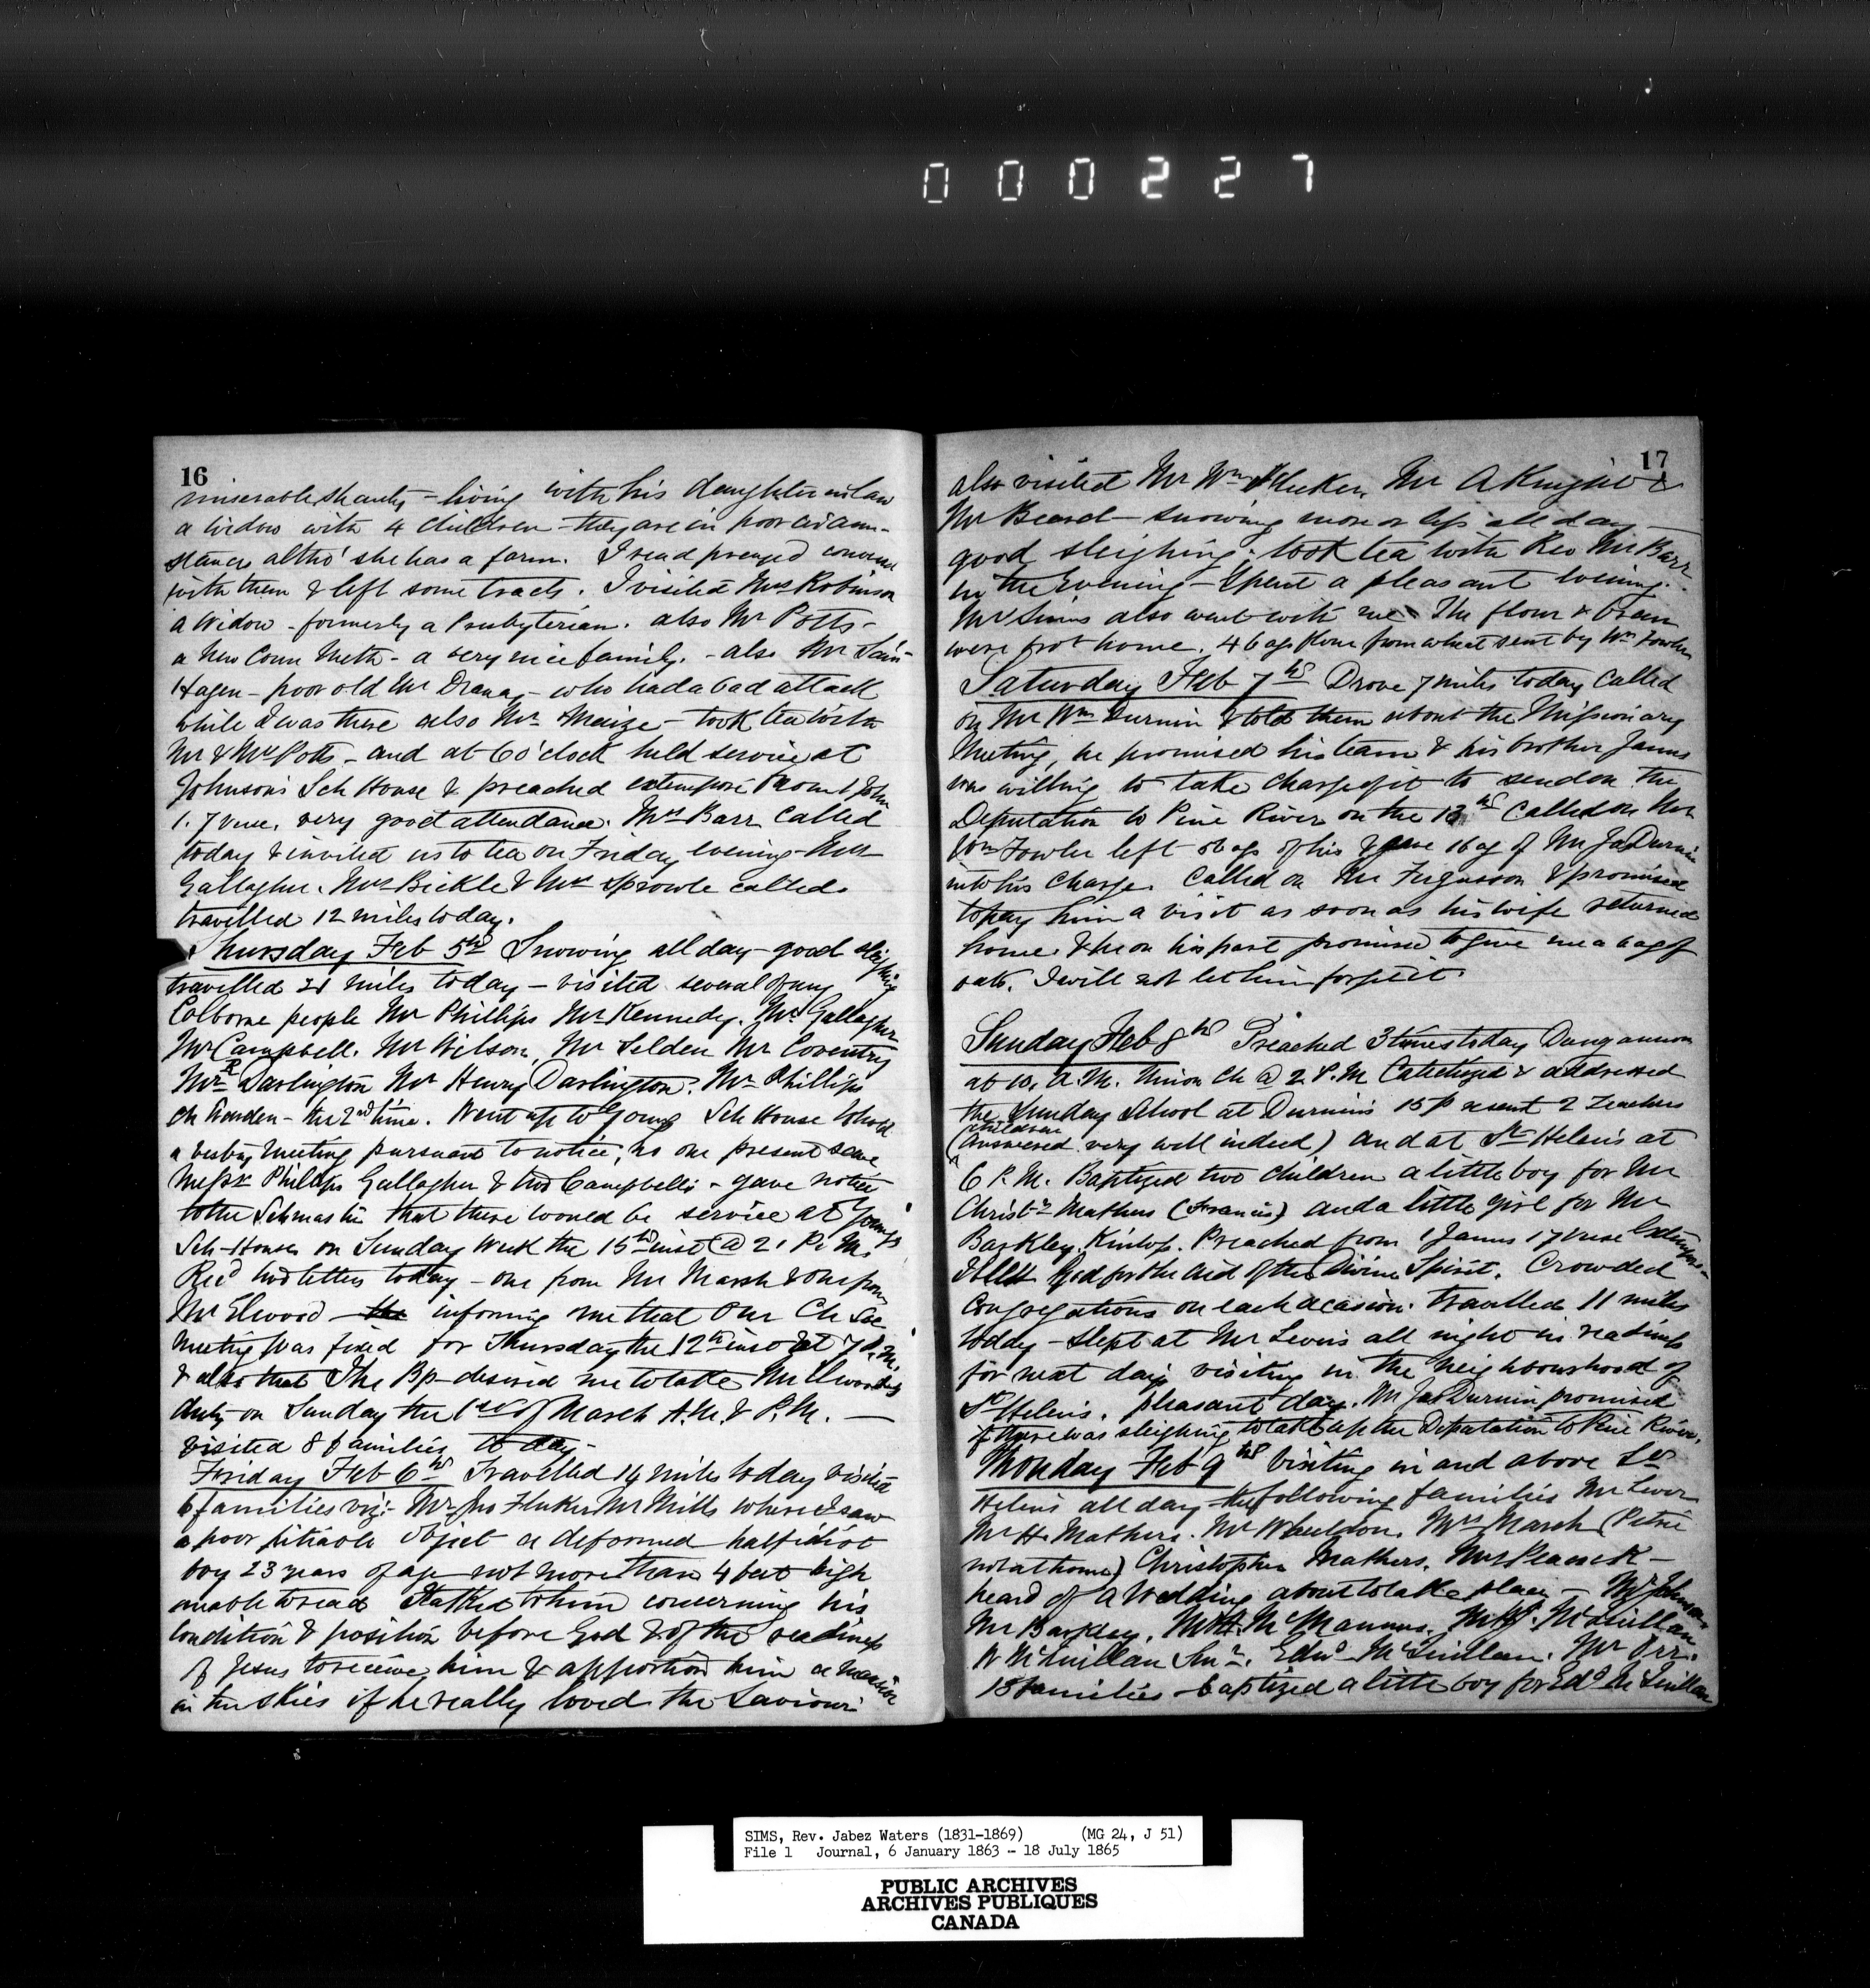 000227
16
miserable shanty - living with his daughter in law
a widow with 4 children - they are in poor circum-
stances altho' she has a farm. I read prayed convers
with them & left some tracts. I visited Mrs Robinson
a Widow - formerly a Presbyterian. also Mr Potts -
a New Conn Meth - a very nice family. - also Mr
Hagen - poor old Mr - who had a bad attack
while I was there also Mr Maize - took tea with
Mr & Mrs Potts - and at 6 o'clock held service at
Johnson's Sch House & preached extempore from 1 John
1. 7 verse. very good attendance. Mrs Barr called
today & invited us to tea on Friday evening - Mrs
Gallagher. Mrs Bickle & Mrs Sprowle called.
travelled 12 miles today.
Thursday Feb 5th Snowing all day - good sleighing
travelled 21 miles today - visited several of my
Colborne people Mr Phillips Mr Kennedy. Mr Gallagher
Mr Campbell. Mr Wilson, Mr Selden Mr Coventry
Mr R Darlington Mr Henry Darlington. Mr Phillips
Ch Warden - the 2nd time. Went up to Youngs Sch House to hold
a vestry meeting pursuant to notice, no one present save
Messrs Phillips Gallagher & two Campbells - gave notice
to the Schmaster that there would be service at Youngs
Sch-House on Sunday week the 15th inst @ 2 P.M.
Recd two letters today - one from Mr Marsh & one from
Mr Elwood - the informing me that our Ch Soc
meeting was fixed for Thursday the 12th inst at 7 P.M.
& also that The Bp desired me to take Mr Elwoods
duty on Sunday the 1st of March A.M. & P.M. -
visited 8 families to day -
Friday Feb 6th Travelled 14 miles today visited
6 families viz:- Mr Jno Fluker Mr Mills where I saw
a poor pitiable object a deformed half idiot
boy 23 years of age not more than 4 feet high
unable to read I talked to him concerning his
condition & position before God & of the readiness
of Jesus to receive him & apportion him a mansion
in the skies if he really loved the Saviour
17
also visited Mr Wm Fluker, Mr A &
Mr Beard - snowing more or less all day -
good sleighing: took tea with Rev Mr Barr
in the Evening - Spent a pleasant evening.
Mrs Sims also went with me The flour & bran
were got home. 4 bags flour from wheat sent by Wm Fowler
Saturday Feb 7th Drove 7 miles today called
on Mr Wm Durnin & told them about the Missionary
Meeting, he promised his team & his brother James
was willing to take charge of it to send on the
Deputation to Pine River on the 13th Called on Mr
Wm Fowler left bags of his & gave 1 bag of Mr Jas Durnin
into his charge. Called on Mr Fergusson & promised
to pay him a visit as soon as his wife returned
home. & he on his part promised to give me a bag of
oats. I will not let him forget it.
Sunday Feb 8th Preached 3 times today Dungannon
at 10. A.M. Union Ch @ 2. P.M. Catechized & addressed
the Sunday School at Durnins 15 present 2 teachers
(children answered very well indeed) and at St Helens at
6 P.M. Baptized two children a little boy for Mr
Christr Mathers (Francis) and a little girl for Mr
Barkley, Kinloss. Preached from 1 James 17 verse Extempore -
Bless God for the aid of the Divine Spirit. Crowded
congregations on each occasion. travelled 11 miles
today - slept at Mr Levers all night in readiness
for next day's visiting in the neighbourhood of
St Helens. pleasant day. Mr Jas Durnin promised
if there was sleighing to take up the Deputation to Pine River.
Monday Feb 9th Visiting in and above St
Helens all day - the following families Mr Lever
Mr H. Mathers. Mr Wheeldon. Mrs Marsh (Petrie
not at home) Christopher Mathers. Mrs Peacock -
heard of a Wedding about to take place - Mr Johnson.
Mr Barkley. Mr A. McManus. Mr McQuillan
W McQuillan Snr. Edwd McQuillan. Mr Orr.
13 families - baptized a little boy for Edd McQuillan
SIMS, Rev. Jabez Waters (1831-1869) (MG 24, J 51)
File 1 Journal, 6 January 1863 - 18 July 1865
PUBLIC ARCHIVES
ARCHIVES PUBLIQUES
CANADA